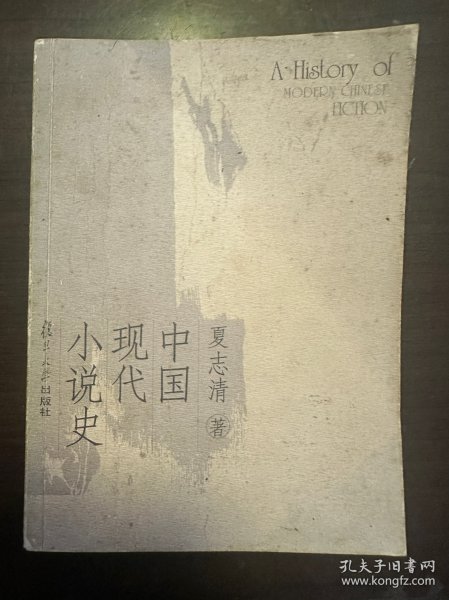 A History of
MODERN CHINESE
FICTION
夏志清 著
中国
现代
小说史
复旦大学出版社
孔夫子旧书网
www.kongfz.com